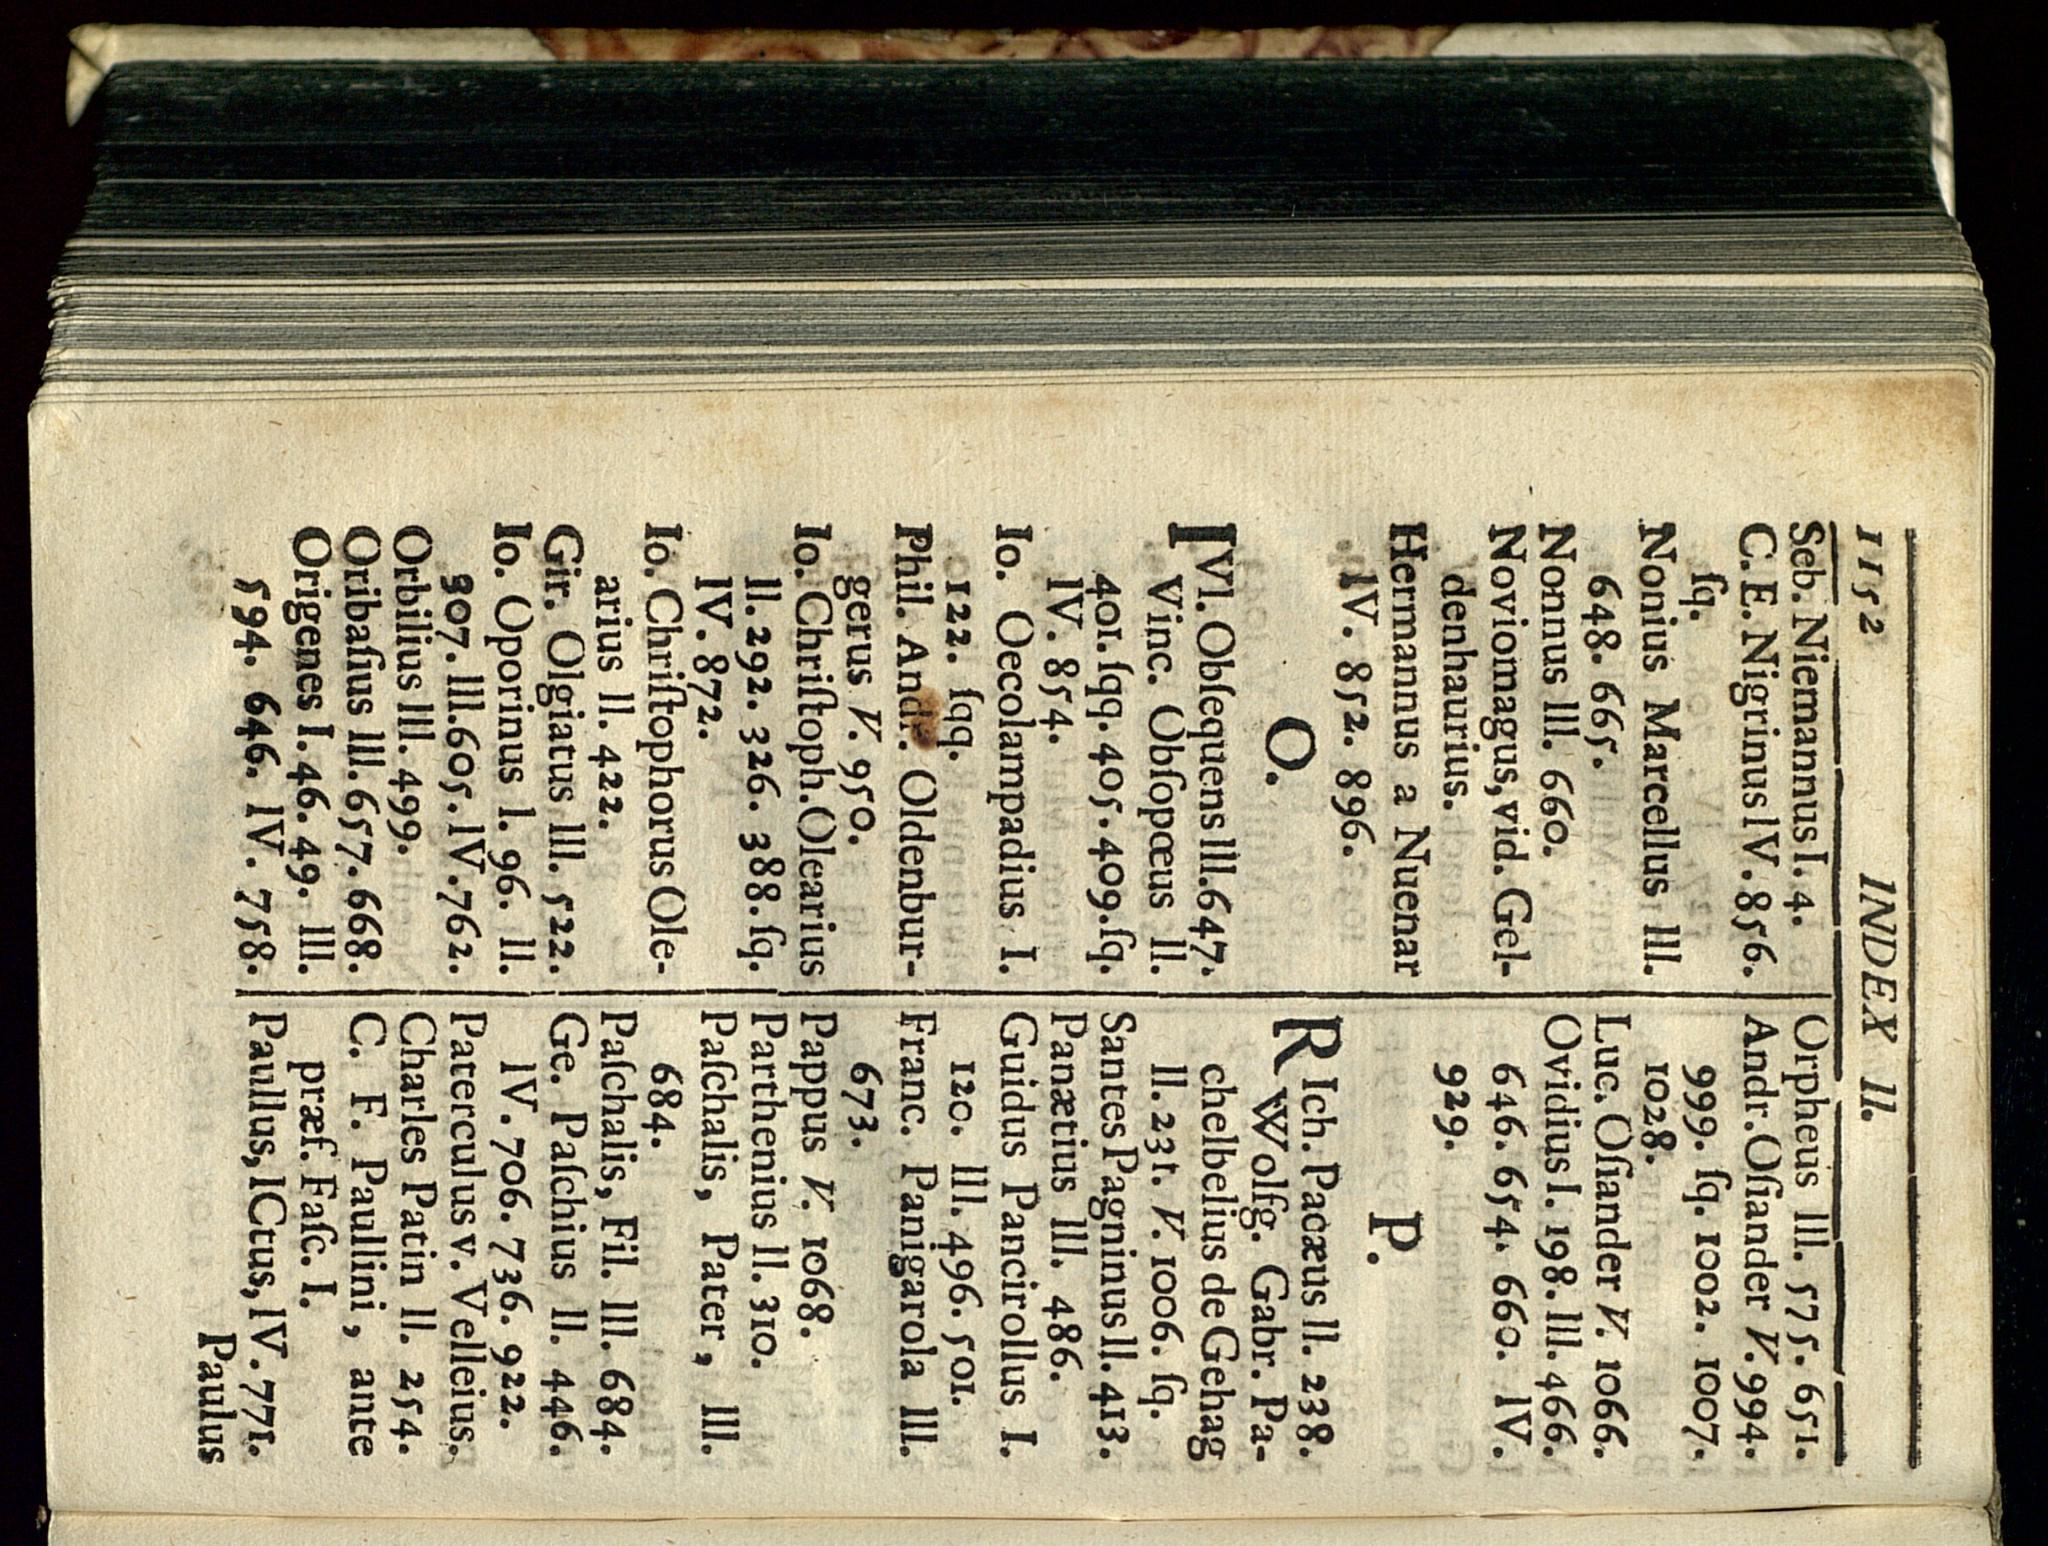 1152 INDEX II.
Seb. Niemannus I. 4.
C. E. Nigrinus IV. 856.
ſq.
Nonius Marcellus III.
648. 665.
Nonnus III. 660.
Noviomagus, vid. Gel-
denhaurius.
Hermannus a Nuenar
IV. 852. 896.
O.
IVl. Obſequens III. 647.
Vinc. Obſopœus II.
401. ſqq. 405. 409. ſq.
IV. 854.
Io. Oecolampadius I.
122. ſqq.
Phil. Andr. Oldenbur-
gerus V. 950.
Io. Chriſtoph. Olearius
II. 292. 326. 388. ſq.
IV. 872.
Io. Chriſtophorus Ole-
arius II. 422.
Gir. Olgiatus III. 522.
Io. Oporinus I. 96. II.
307. III. 605. IV. 762.
Orbilius III. 499.
Oribaſius III. 657. 668.
Origenes I. 46. 49. III.
594. 646. IV. 758.
Orpheus III. 575. 651.
Andr. Oſiander V. 994.
999. ſq. 1002. 1007.
1028.
Luc. Oſiander V. 1066.
Ovidius I. 198. III. 466.
646. 654. 660. IV.
929.
P.
RIch. Pacæus II. 238.
Wolfg. Gabr. Pa-
chelbelius de Gehag
II. 231. V. 1006. ſq.
Santes Pagninus II. 413.
Panætius III. 486.
Guidus Pancirollus I.
120. III. 496. 501.
Franc. Panigarola III.
673.
Pappus V. 1068.
Parthenius II. 310.
Paſchalis, Pater, III.
684.
Paſchalis, Fil. III. 684.
Ge. Paſchius II. 446.
IV. 706. 736. 922.
Paterculus v. Velleius.
Charles Patin II. 254.
C. F. Paullini, ante
præf. Faſc. I.
Paullus, ICtus, IV. 771.
Paulus